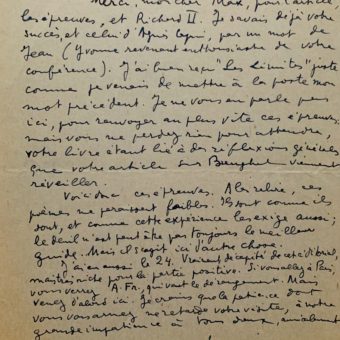 Merci, mon cher Max, pour l'article,
les épreuves, et Richard II. Je savais déjà votre
succès, et celui d' par un mot de
Jean (Yvonne revenant enthousiaste de votre
conférence). J'ai bien reçu "Les Limites" juste
comme je venais de mettre à la poste mon
mot précédent. Je ne vous en parle pas
ici, pour renvoyer au plus vite ces épreuves,
mais vous ne perdez rien pour attendre,
votre livre étant lié à des réflexions générales
que votre article sur Breughel vient
réveiller.
Voici donc ces épreuves. A la relire, ces
poèmes me paraissent faibles. Ils sont comme ils
sont, et comme cette expérience les exige aussi;
le deuil n'est peut être pas toujours le meilleur
guide. Mais il s'agit ici d'autre chose.
J'ai eu aussi le 24. Vraiment
mais très riche pour la partie positive. Si vous allez à Paris,
vous verrez A. Fr., qui vaut le dérangement. Mais
venez d'abord ici. Je crains que la patience dont
vous vous armez ne retarde votre visite, à notre
grande impatience à tous deux, amicalement